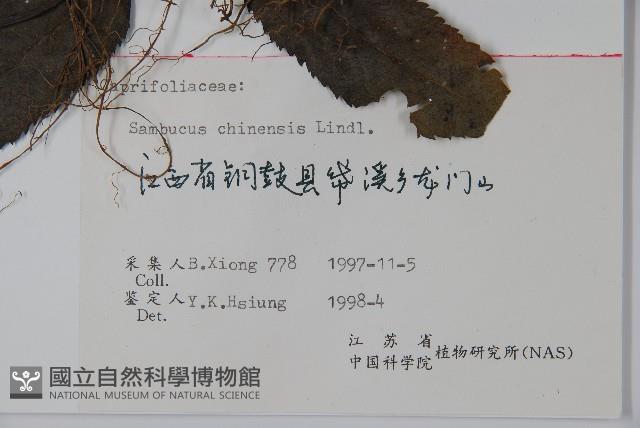 Caprifoliaceae:
Sambucus chinensis Lindl.
江西省铜鼓县带溪乡龙门山
采集人 B.Xiong 778 1997-11-5
Coll.
鉴定人 Y.K.Hsiung 1998-4
Det.
江苏省
中国科学院 植物研究所(NAS)
國立自然科學博物館
NATIONAL MUSEUM OF NATURAL SCIENCE